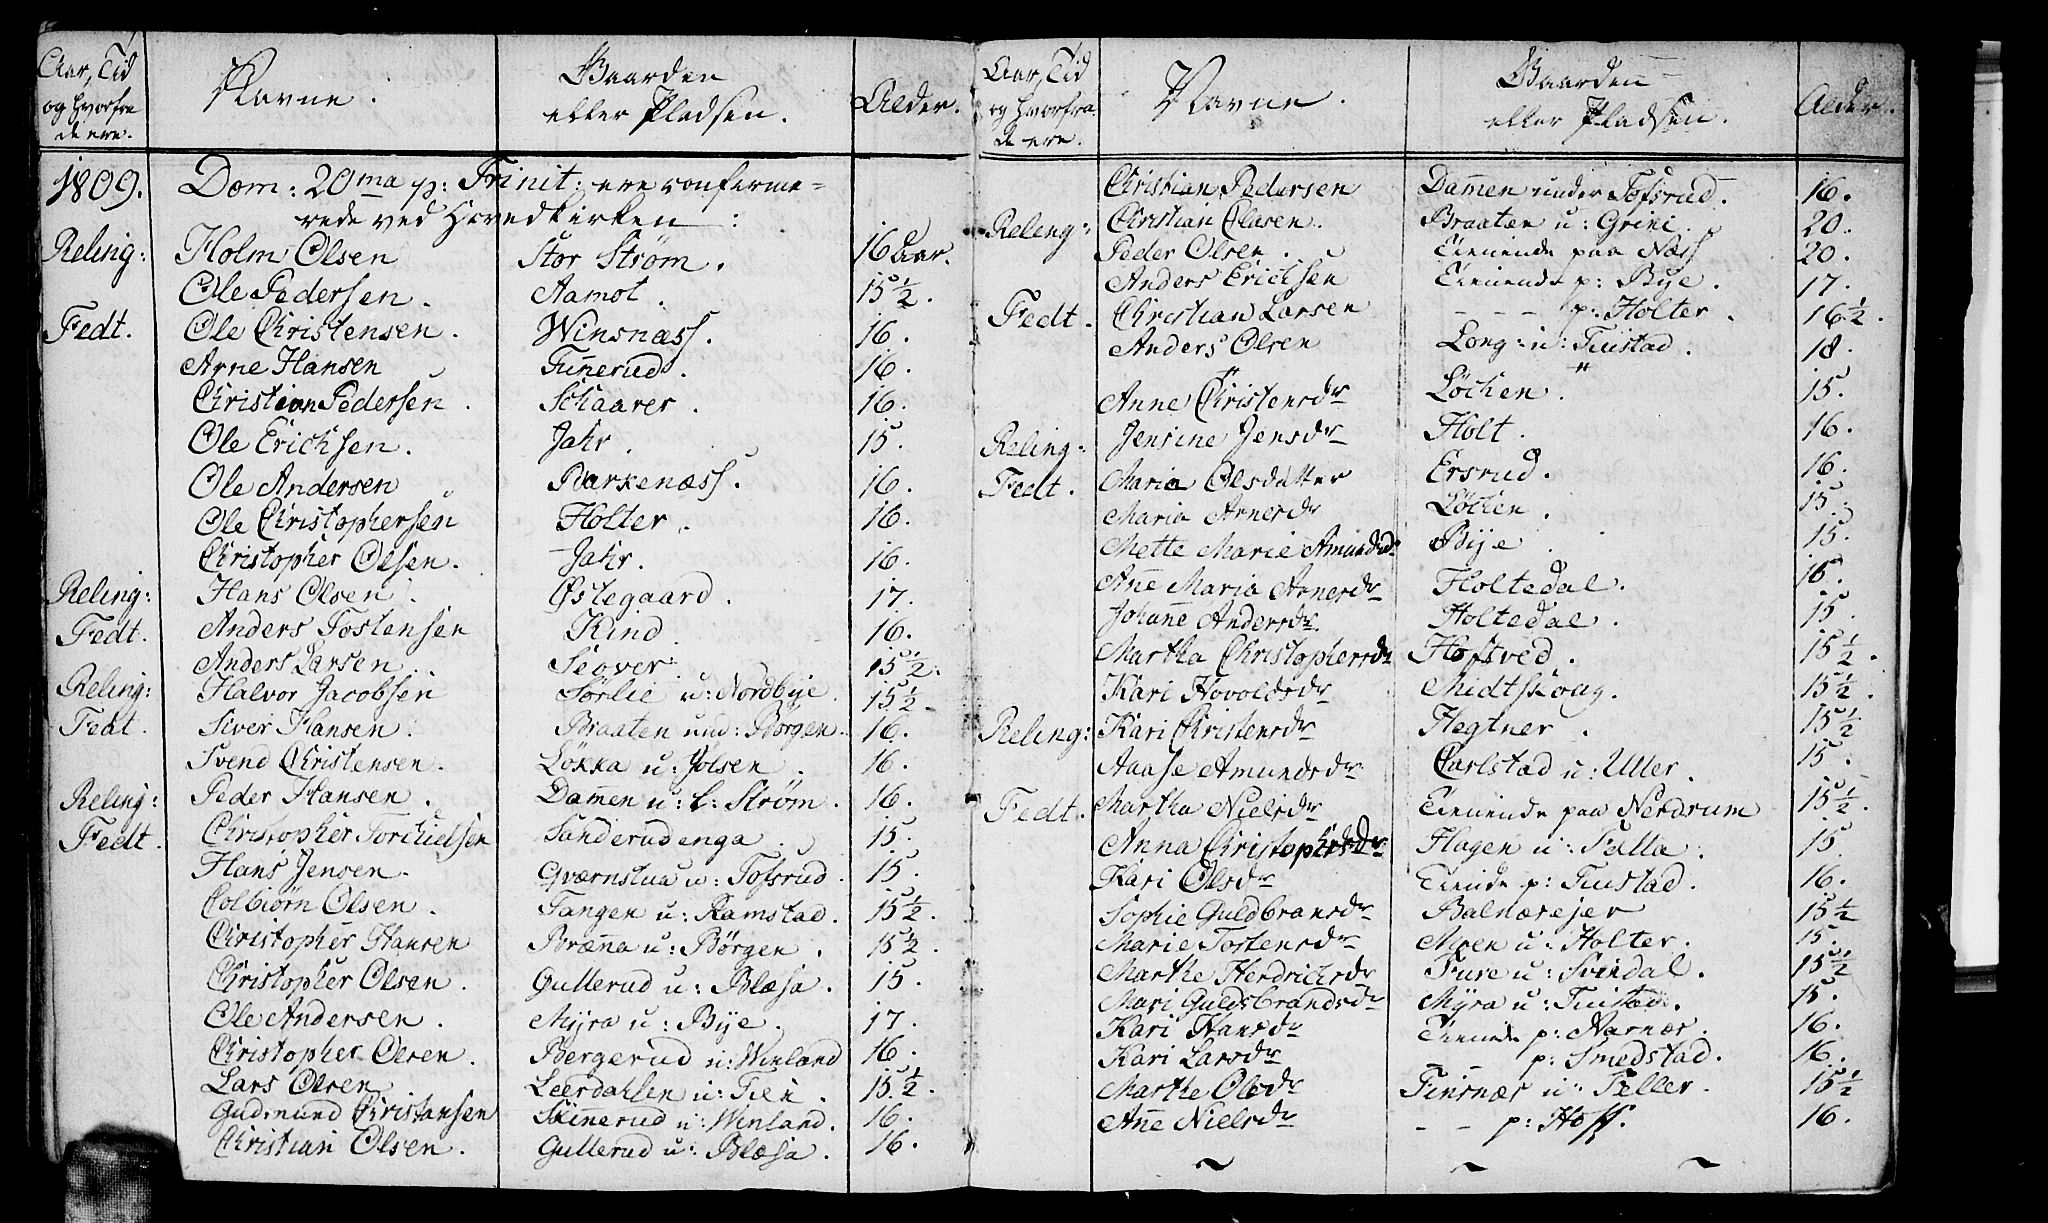 Aar, Tid og hvorfra de ere. Navne. Gaarden eller Pladsen. Alder.
1809. Dom: 20ma p: Trinit: ere confirme=
rede ved Hovedkirken :
Reling: Holm Olsen Stor Strøm. 16 Aar.
Ole Pedersen. Aamot. 15 1/2.
Fedt. Ole Christensen. Winsnæss. 16.
Arne Hansen Funnerud. 16.
Christian Pedersen. Schaarer. 16.
Ole Erichsen. Jahr. 15.
Ole Andersen Barkenæss. 16.
Ole Christophersen Holter. 16.
Christopher Olsen. Jahr. 16.
Reling: Hans Olsen. Østegaard. 17.
Fedt. Anders Tostensen Kind. 16.
Anders Larsen. Seover. 15 1/2.
Reling: Halvor Jacobsen Sørlie u: Nordbye 15 1/2.
Fedt. Siver Hansen. Braaten und: Børgen. 16.
Svend Christensen. Løkka u: Jølsen. 16.
Reling: Peder Hansen. Dammen u: l: Strøm. 16.
Fedt. Christopher Torchielsen Sanderudenga. 15.
Hans Jensen. Qværnstua u: Tofsrud. 15.
Colbiørn Olsen. Tangen u: Ramstad. 15 1/2.
Christopher Hansen Brænna u: Børgen. 15 1/2.
Christopher Olsen. Gullerud u: Blæsa. 15.
Ole Andersen. Myra u: Bye. 17.
Christopher Olsen. Bergerud u: Winland 16.
Lars Olsen Leerdahlen u: Tien. 15 1/2.
Gudmund Christansen Skinnerud u: Winland. 16.
Christian Olsen. Gullerud u: Blæsa. 16.
Aar, Tid og hvorfra de ere. Navne. Gaarden eller Pladsen. Alder.
Christian Pedersen Dammen under Tofsrud. 16.
Reling: Christian Olasen. Braaten u: Grini. 20.
Peder Olsen. Tienende paa Næss 20.
Anders Erichsen Tienende p: Bye. 17.
Fedt. Christian Larsen - - - p: Holter. 16 1/2.
Anders Olsen Long: u: Tuistad. 18.
Anne Christensdr Løchen. 15.
Reling: Jensine Jensdr Holt. 16.
Fedt. Maria Olsdatter Ersrud. 16.
Maria Arnesdr Løchen. 15.
Mette Marie Amundsdr Bye. 15.
Anne Maria Arnesdr Holtedal. 15.
Johanne Andersdr. Holtedal. 15.
Martha Christophersdr Hofsved. 15 1/2.
Kari Hovoldsdr Midtskoug. 15 1/2.
Reling: Kari Christensdr Hegtner. 15 1/2
Aase Amundsdr Carlstad u: Uller. 15.
Fedt. Martha Nielsdr Tienende paa Nerdrum 15 1/2.
Anna Christophersdr Hagen u: Falla. 15
Kari Olsdr Tiende p: Tuistad. 16.
Sophie Guldbransdr Balnæsejer 15 1/2
Marie Tostensdr Moen u: Holter. 15.
Marthe Hendrichsdr Fure u: Svindal. 15 1/2
Mari Guldsbrandsdr Myra u: Tuistad. 15.
Kari Hansdr Tienende p: Narnæs. 16.
Kari Larsdr - p: Smedstad. 16.
Marthe Olsdr Finsnæs u: Feller. 15 1/2
Anne Nielsdr - - p: Hoff. 16.